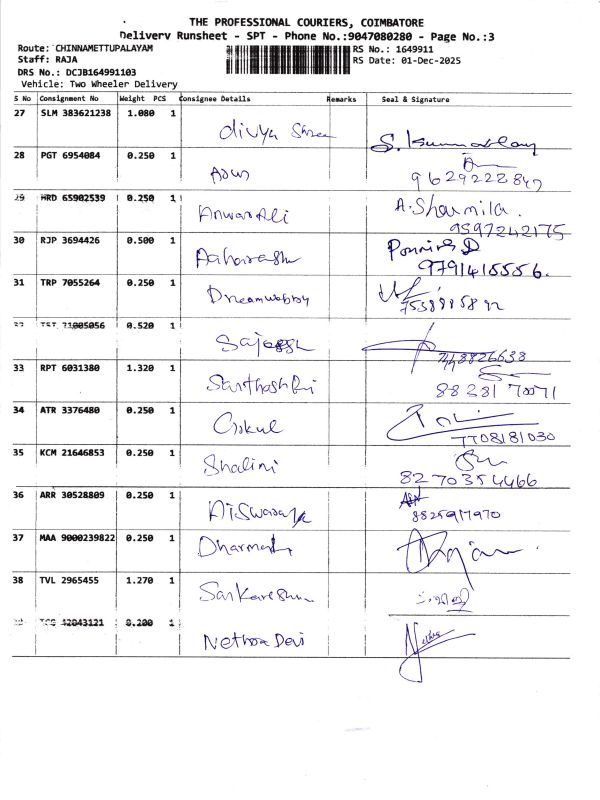 THE PROFESSIONAL COURIERS, COIMBATORE
Delivery Runsheet - SPT - Phone No.:9047080280 - Page No.:3
Route: CHINNAMETTUPALAYAM RS No.: 1649911
Staff: RAJA RS Date: 01-Dec-2025
DRS No.: DCJB164991103
Vehicle: Two Wheeler Delivery
S No Consignment No Weight PCS Consignee Details Remarks Seal & Signature
27 SLM 383621238 1.080 1 divya Shree
28 PGT 6954084 0.250 1 Arun
9629222847
29 HRD 65902539 0.250 1 Anwar Ali A. Sharmila.
9597242175
30 RJP 3694426 0.500 1
9791415556.
31 TRP 7055264 0.250 1
32 TST 71005056 0.520 1
33 RPT 6031380 1.320 1
88381 70071
34 ATR 3376480 0.250 1 Gokul
7708181030
35 KCM 21646853 0.250 1 Shalini
8270354466
36 ARR 30528809 0.250 1
8825917970
37 MAA 9000239822 0.250 1
38 TVL 2965455 1.270 1
39 TCS 42043121 0.200 1 Nethra Devi